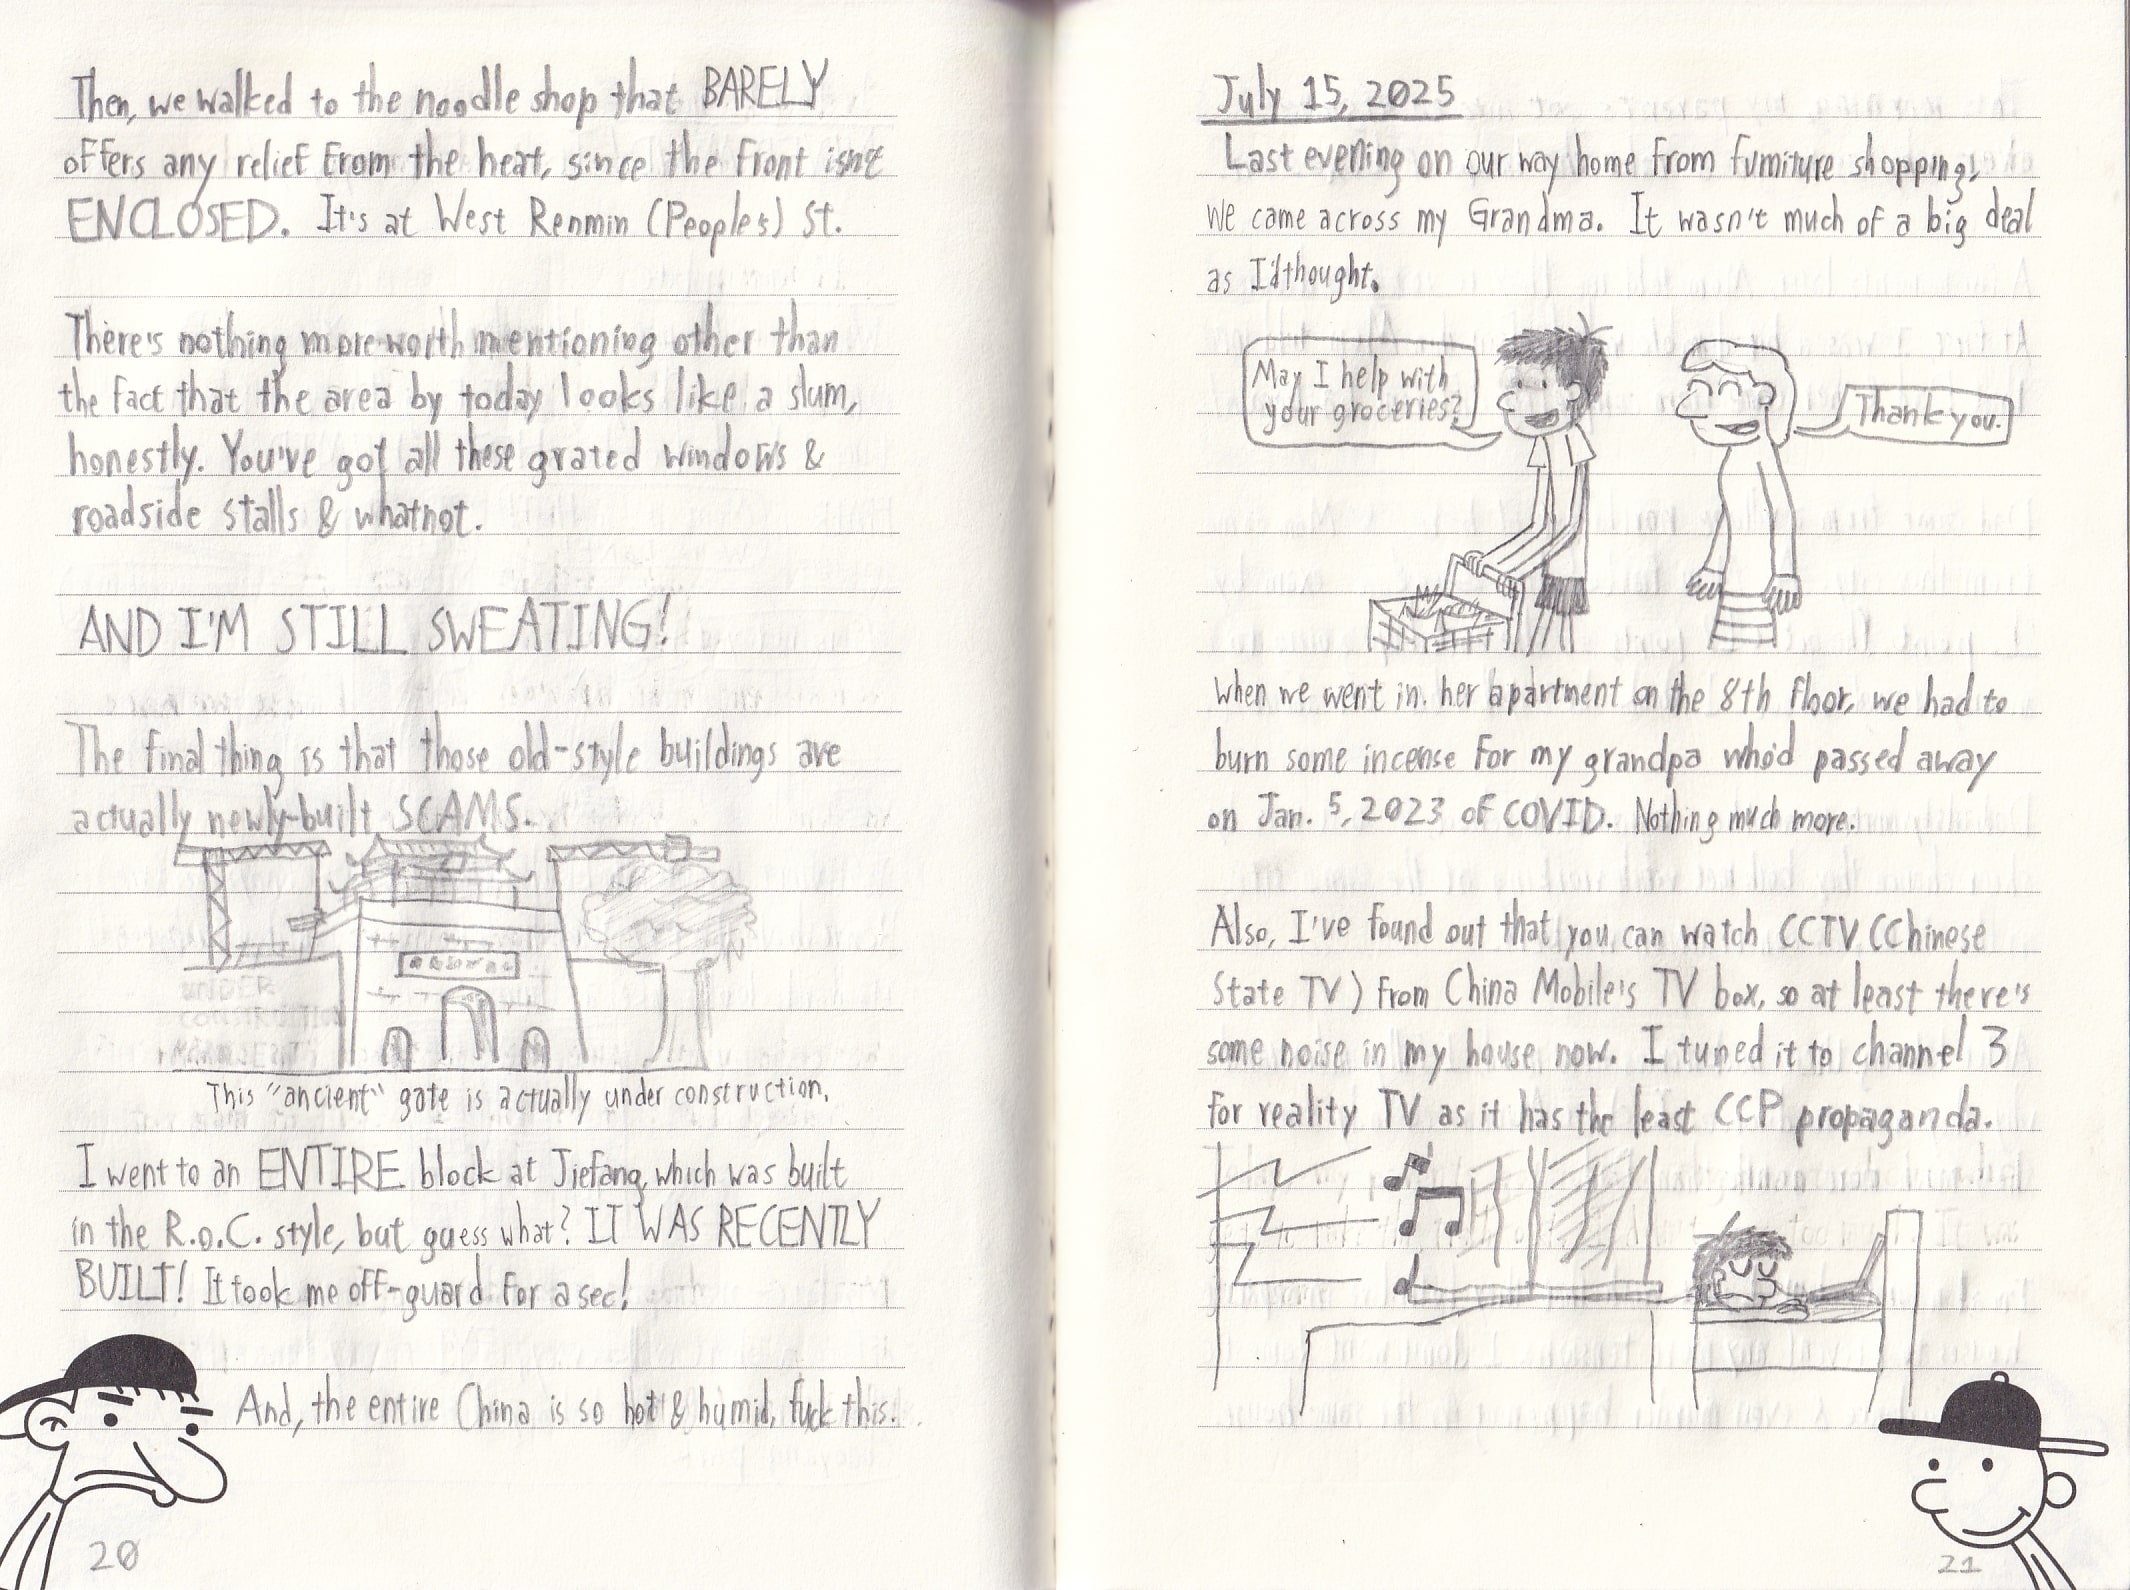 Then, we walked to the noodle shop that BARELY
offers any relief from the heat, since the front isn't
ENCLOSED. It's at West Renmin (People's) St.
There's nothing more worth mentioning other than
the fact that the area by today looks like a slum,
honestly. You've got all these grated windows &
roadside stalls & whatnot.
AND I'M STILL SWEATING!
The final thing is that those old-style buildings are
actually newly-built SCAMS.
UNDER
CONSTRUCTION
This "ancient" gate is actually under construction.
I went to an ENTIRE block at Jiefang, which was built
in the R.o.C. style, but guess what? IT WAS RECENTLY
BUILT! It took me off-guard for a sec!
And, the entire China is so hot & humid, fuck this.
20
July 15, 2025
Last evening on our way home from furniture shopping,
we came across my Grandma. It wasn't much of a big deal
as I'd thought.
May I help with
your groceries?
Thank you.
When we went in her apartment on the 8th floor, we had to
burn some incense for my grandpa who'd passed away
on Jan. 5, 2023 of COVID. Nothing much more.
Also, I've found out that you can watch CCTV (Chinese
State TV) from China Mobile's TV box, so at least there's
some noise in my house now. I tuned it to channel 3
for reality TV as it has the least CCP propaganda.
21